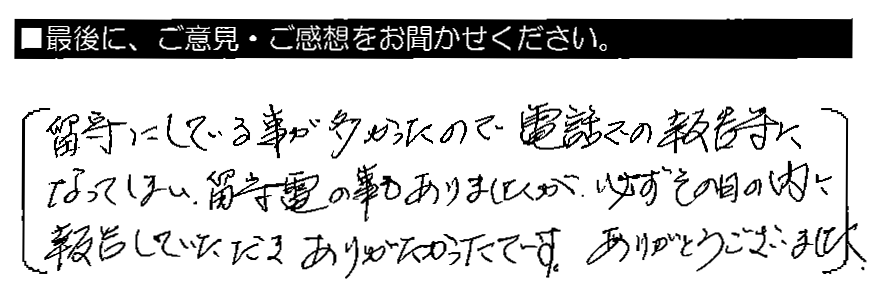 ■最後に、ご意見・ご感想をお聞かせください。
留守にしている事が多かったので電話での報告等に
なってしまい、留守電の事もありましたが、必ずその日の内に
報告していただき ありがたかったです。ありがとうございました。